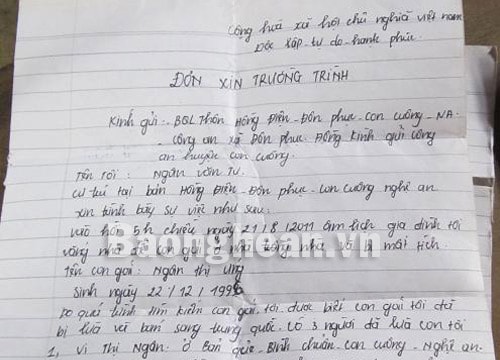 Cộng hoà xã hội chủ nghĩa việt nam
Độc lập - tự do - hạnh phúc
ĐƠN XIN TRƯƠNG TRÌNH
Kính gửi: BQL Thôn Hồng Điện - Đôn phục - con cuông - NA.
công an xã Đôn phục đồng kinh gửi công
an huyện con cuông.
Tên tôi: Ngân văn Tư.
cư trú tại bản Hồng Điện - Đôn phục - con cuông nghệ an
xin trình bày sự việc như sau.
vào hồi 5h chiều ngày 21/8/2011 âm lịch gia đình tôi
vắng nhà để con gái ở nhà và bị mất tích.
Tên con gái: Ngân Thị Ung
Sinh ngày 22/12/1996
Do quá trình tìm kiếm con gái, tôi được biết con gái tôi đã
bị lừa và bán sang trung quốc. có 3 người đã lừa con tôi
1, Vi Thị Ngân ở Bản quẹ - Bình chuẩn - con cuông - Nghệ an.
Baonghean.vn